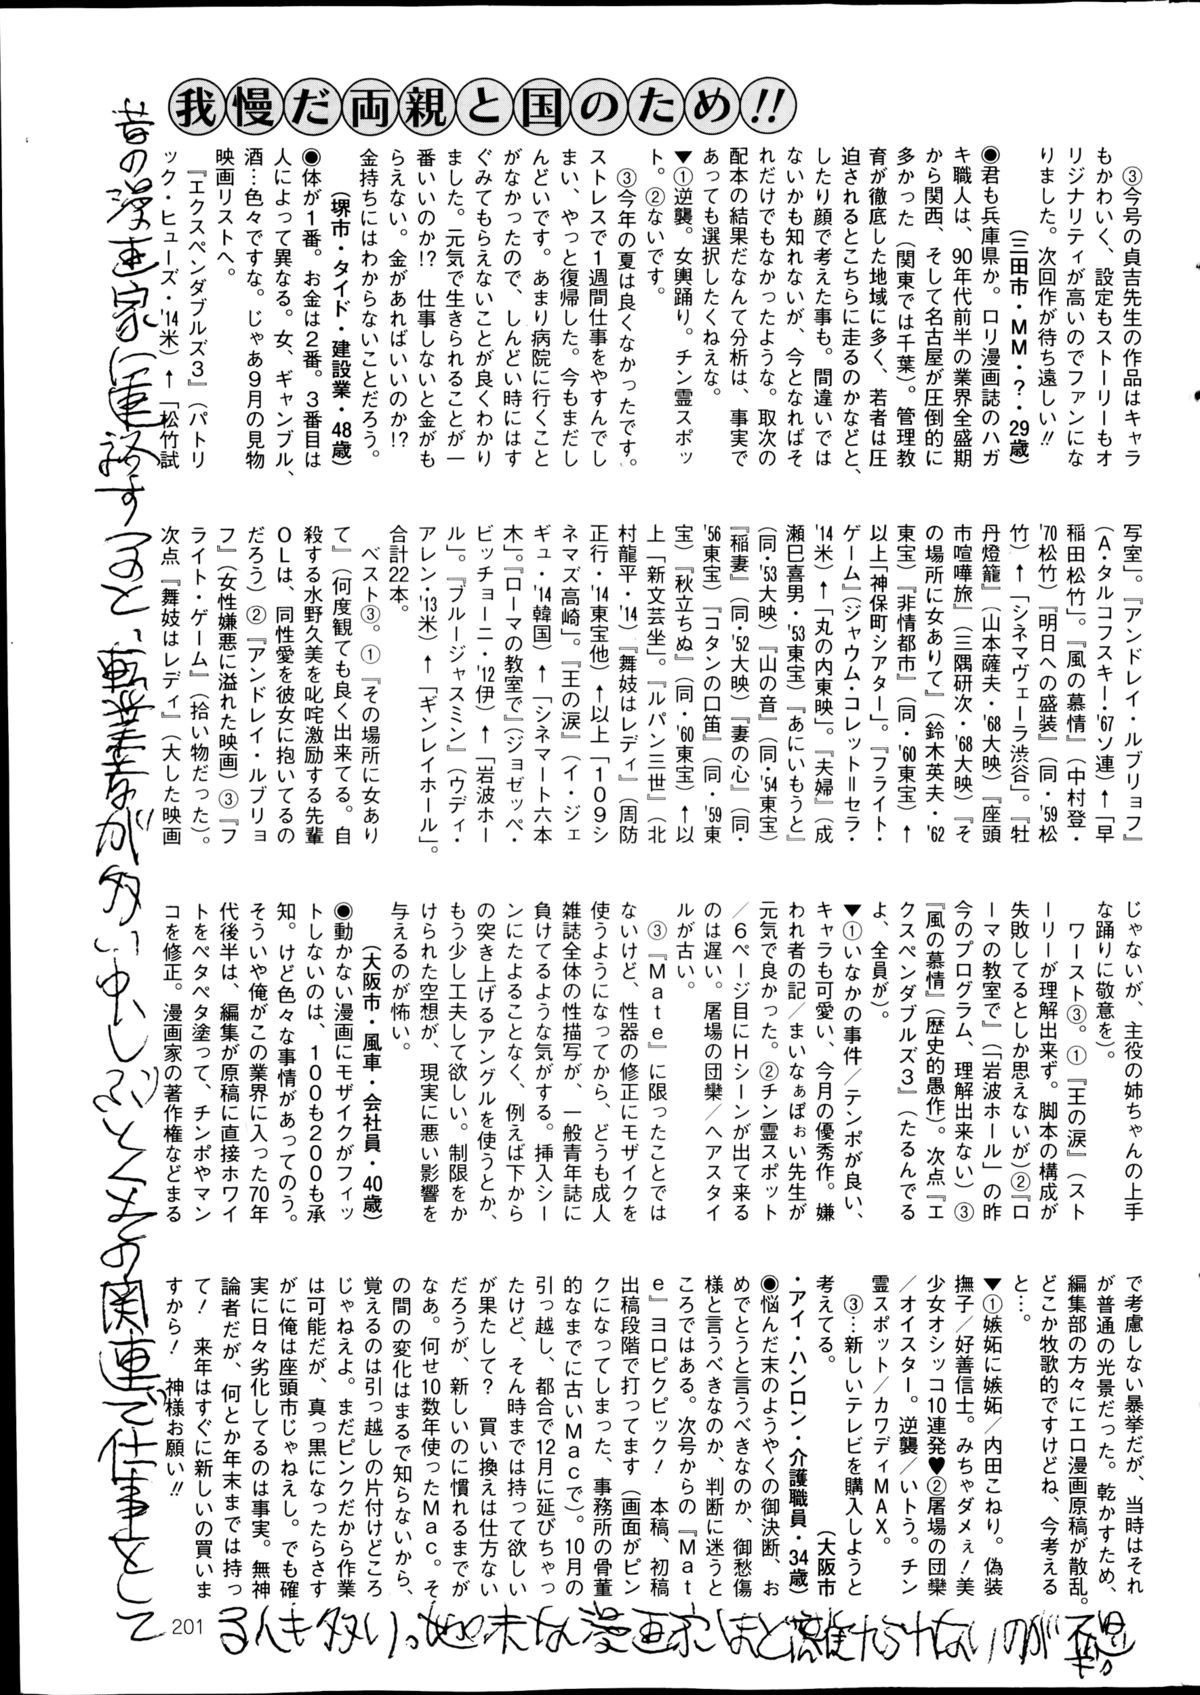 我慢だ両親と国のため!!
③今号の貞吉先生の作品はキャラ
もかわいく、設定もストーリーもオ
リジナリティが高いのでファンにな
りました。次回作が待ち遠しい!!
(三田市・MM・?・29歳)
◉君も兵庫県か。ロリ漫画誌のハガ
キ職人は、90年代前半の業界全盛期
から関西、そして名古屋が圧倒的に
多かった(関東では千葉)。管理教
育が徹底した地域に多く、若者は圧
迫されるとこちらに走るのかなどと、
したり顔で考えた事も。間違いでは
ないかも知れないが、今となればそ
れだけでもなかったような。取次の
配本の結果だなんて分析は、事実で
あっても選択したくねえな。
▼①逆襲。女輿踊り。チン霊スポッ
ト。②ないです。
③今年の夏は良くなかったです。
ストレスで1週間仕事をやすんでし
まい、やっと復帰した。今もまだし
んどいです。あまり病院に行くこと
がなかったので、しんどい時にはす
ぐみてもらえないことが良くわかり
ました。元気で生きられることが一
番いいのか!? 仕事しないと金がも
らえない。金があればいいのか!?
金持ちにはわからないことだろう。
(堺市・タイド・建設業・48歳)
◉体が1番。お金は2番。3番目は
人によって異なる。女、ギャンブル、
酒…色々ですな。じゃあ9月の見物
映画リストへ。
『エクスペンダブルズ3』(パトリ
ック・ヒューズ・'14米)↑「松竹試
写室」。『アンドレイ・ルブリョフ』
(A・タルコフスキー・'67ソ連)↑「早
稲田松竹」。『風の慕情』(中村登・
'70松竹)『明日への盛装』(同・'59松
竹)↑「シネマヴェーラ渋谷」。『牡
丹燈籠』(山本薩夫・'68大映)『座頭
市喧嘩旅』(三隅研次・'68大映)『そ
の場所に女ありて』(鈴木英夫・'62
東宝)『非情都市』(同・'60東宝)↑
以上「神保町シアター」。『フライト・
ゲーム』(ジャウム・コレット=セラ・
'14米)↑「丸の内東映」。『夫婦』(成
瀬巳喜男・'53東宝)『あにいもうと』
(同・'53大映)『山の音』(同・'54東宝)
『稲妻』(同・'52大映)『妻の心』(同・
'56東宝)『コタンの口笛』(同・'59東
宝)『秋立ちぬ』(同・'60東宝)↑以
上「新文芸坐」。『ルパン三世』(北
村龍平・'14)『舞妓はレディ』(周防
正行・'14東宝他)↑以上「109シ
ネマズ高崎」。『王の涙』(イ・ジェ
ギュ・'14韓国)↑「シネマート六本
木」。『ローマの教室で』(ジョゼッペ・
ビッチョーニ・'12伊)↑「岩波ホー
ル」。『ブルージャスミン』(ウディ・
アレン・'13米)↑「ギンレイホール」。
合計22本。
ベスト③。①『その場所に女あり
て』(何度観ても良く出来てる。自
殺する水野久美を叱咤激励する先輩
OLは、同性愛を彼女に抱いてるの
だろう)②『アンドレイ・ルブリョ
フ』(女性嫌悪に溢れた映画)③『フ
ライト・ゲーム』(拾い物だった)。
次点『舞妓はレディ』(大した映画
じゃないが、主役の姉ちゃんの上手
な踊りに敬意を)。
ワースト③。①『王の涙』(スト
ーリーが理解出来ず。脚本の構成が
失敗してるとしか思えないが)②『ロ
ーマの教室で』(「岩波ホール」の昨
今のプログラム、理解出来ない)③
『風の慕情』(歴史的愚作)。次点『エ
クスペンダブルズ3』(たるんでる
よ、全員が)。
▼①いなかの事件/テンポが良い、
キャラも可愛い、今月の優秀作。嫌
われ者の記/まいなぁぼぉい先生が
元気で良かった。②チン霊スポット
/6ページ目にHシーンが出て来る
のは遅い。屠場の団欒/ヘアスタイ
ルが古い。
③『Mate』に限ったことでは
ないけど、性器の修正にモザイクを
使うようになってから、どうも成人
雑誌全体の性描写が、一般青年誌に
負けてるような気がする。挿入シー
ンにたよることなく、例えば下から
の突き上げるアングルを使うとか、
もう少し工夫して欲しい。制限をか
けられた空想が、現実に悪い影響を
与えるのが怖い。
(大阪市・風車・会社員・40歳)
◉動かない漫画にモザイクがフィッ
トしないのは、100も200も承
知。けど色々な事情があってのう。
そういや俺がこの業界に入った70年
代後半は、編集が原稿に直接ホワイ
トをペタペタ塗って、チンポやマン
コを修正。漫画家の著作権などまる
で考慮しない暴挙だが、当時はそれ
が普通の光景だった。乾かすため、
編集部の方々にエロ漫画原稿が散乱。
どこか牧歌的ですけどね、今考える
と…。
▼①嫉妬に嫉妬/内田こねり。偽装
撫子/好善信士。みちゃダメぇ!美
少女オシッコ10連発♥②屠場の団欒
/オイスター。逆襲/いトう。チン
霊スポット/カワディMAX。
③…新しいテレビを購入しようと
考えてる。
(大阪市
・アイ・ハンロン・介護職員・34歳)
◉悩んだ末のようやくの御決断、お
めでとうと言うべきなのか、御愁傷
様と言うべきなのか、判断に迷うと
ころではある。次号からの『Mat
e』ヨロピクピック! 本稿、初稿
出稿段階で打ってます(画面がピン
クになってしまった、事務所の骨董
的なまでに古いMacで)。10月の
引っ越し、都合で12月に延びちゃっ
たけど、そん時までは持って欲しい
が果たして? 買い換えは仕方ない
だろうが、新しいのに慣れるまでが
なあ。何せ10数年使ったMac。そ
の間の変化はまるで知らないから、
覚えるのは引っ越しの片付けどころ
じゃねえよ。まだピンクだから作業
は可能だが、真っ黒になったらさす
がに俺は座頭市じゃねえし。でも確
実に日々劣化してるのは事実。無神
論者だが、何とか年末までは持っ
て! 来年はすぐに新しいの買いま
すから! 神様お願い!!
昔の漫画家に連絡すると、転業者が多い中、しぶとくその関連で仕事として
るんも多い。
201